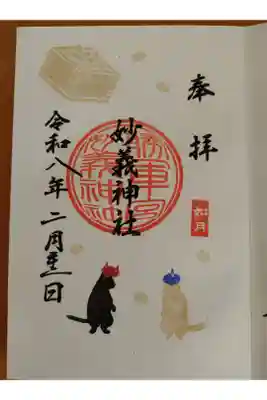 奉拝
如月
勝軍宮
妙義神社
妙義神社
令和八年二月 日